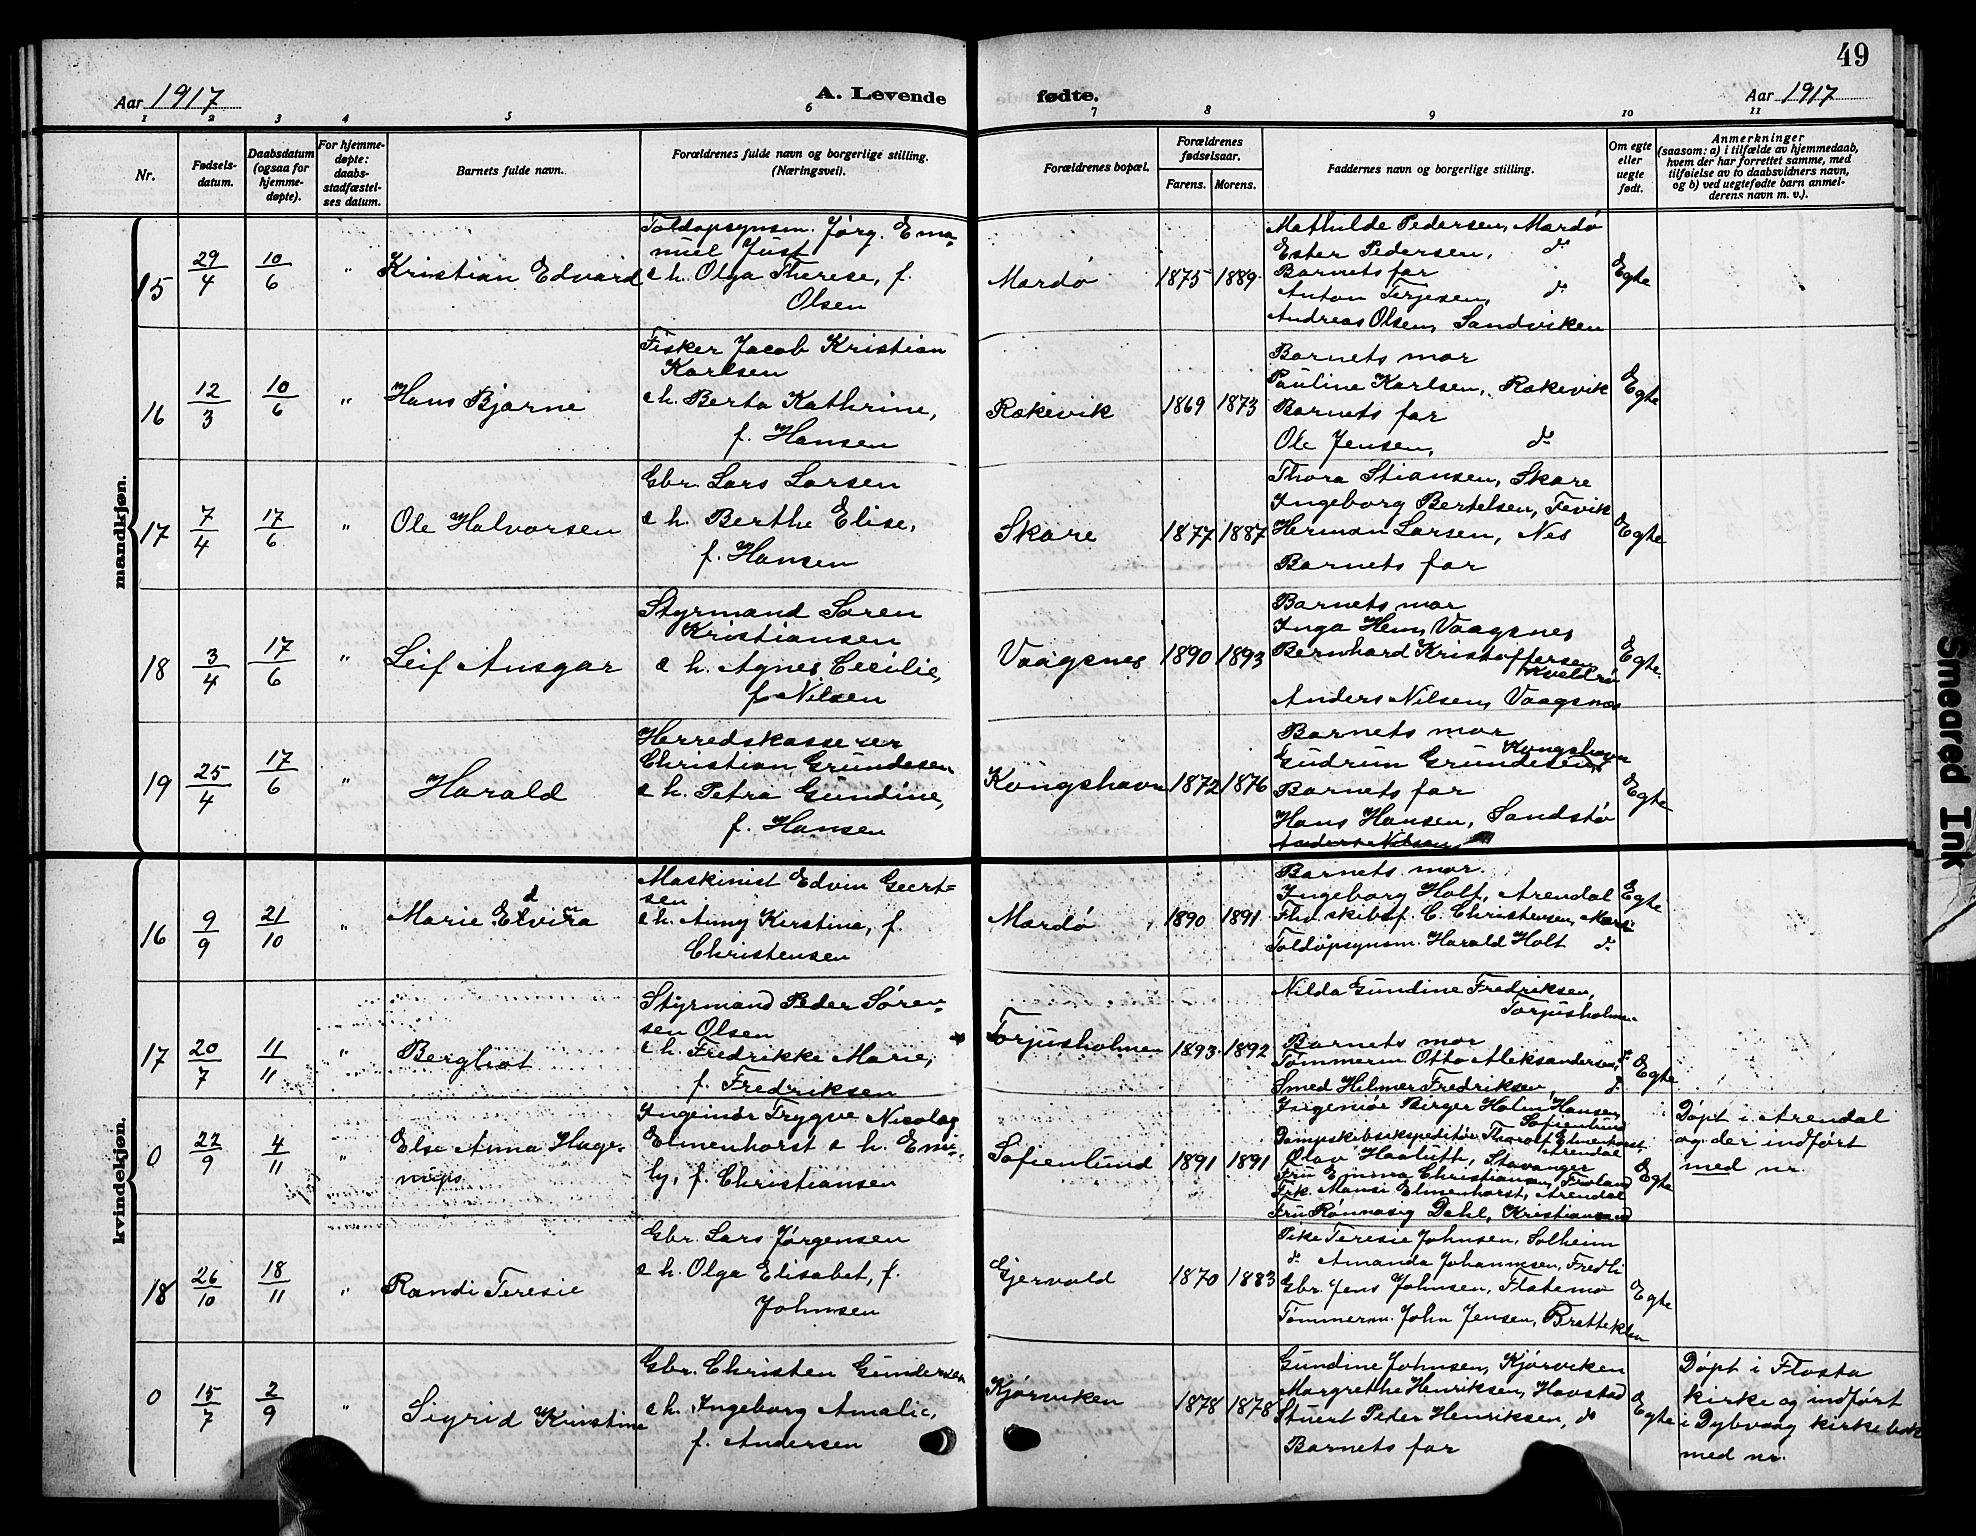 49
Aar 1917
A. Levende
fødte.
Aar 1917
1 2 3 4 5 6 7 8 9 10 11
Nr.
Fødsels-
datum.
Daabsdatum
(ogsaa for
hjemme-
døpte).
For hjemme-
døpte:
daabs-
stadfæstel-
ses datum.
Barnets fulde navn.
Forældrenes fulde navn og borgerlige stilling.
(Næringsvei).
Forældrenes bopæl.
Forældrenes
fødselsaar.
Farens. Morens.
Faddernes navn og borgerlige stilling.
Om egte
eller
uegte
født.
Anmerkninger
(saasom: a) i tilfælde av hjemmedaab,
hvem der har forrettet samme, med
tilføielse av to daabsvidners navn,
og b) ved uegtefødte barn anmel-
derens navn m. v.).
mandkjøn.
15
29/4
10/6
"
Kristian Edvard
Toldopsynsm. Jørg. Ema-
nuel Just
e h. Olga Therese, f.
Olsen
Mardø
1875 1889
Mathilde Pedersen, Mardø
Ester Pedersen, do
Barnets far
Anton Terjesen, do
Andreas Olsen, Sandviken
Egte
16
12/3
10/6
"
Hans Bjarne
Fisker Jacob Kristian
Karlsen
e h. Berta Kathrine,
f. Hansen
Rækevik
1869 1873
Barnets mor
Pauline Karlsen, Rækevik
Barnets far
Ole Jensen, do
Egte
17
7/4
17/6
"
Ole Halvorsen
Gbr. Lars Larsen
e h. Berthe Elise,
f. Hansen
Skare
1877 1887
Thora Stiansen, Skare
Ingeborg Bertelsen, Fevik
Herman Larsen, Nes
Barnets far
Egte
18
3/4
17/6
"
Leif Ansgar
Styrmand Søren
Kristiansen
e h. Agnes Cecilie,
f. Nilsen
Vaagsnes
1890 1893
Barnets mor
Inga Hem, Vaagsnes
Bernhard Kristoffersen
Kveldrø
Anders Nilsen, Vaagsnes
Egte.
19
25/4
17/6
"
Harald
Herredskasserer
Christian Grundesen
e h. Petra Gundine,
f. Hansen
Kongshavn
1872 1876
Barnets mor
Kongshavn
Gudrun Grundesen,
Barnets far
Hans Hansen, Sandstø
Anders Nilsen,
Egte
kvindekjøn.
16
9/9
21/10
"
Marie Edvina
Maskinist Edvin Geert-
sen
e h. Anny Kirstine, f.
Christensen
Mardø
1890 1891
Barnets mor.
Ingeborg Holt, Arendal
Fhv. skibsf. C. Christensen, Mardø
Toldopsynsm. Harald Holt do
Egte
17
20/7
11/11
"
Bergliot
Styrmand Peder Søren-
sen Olsen
e h. Fredrikke Marie,
f. Fredriksen
Torjusholmen
1893 1892
Nilda Gundine Fredriksen,
Torjusholmen
Barnets mor
Tømmerm Otto Aleksandersen, do
Smed Hilmer Fredriksen, do
Egte
0
22/9
4/11
"
Else Anna Hage-
Ingeniør Trygve Nicolay
Elmenhorst e h. Emi-
ly, f. Christiansen
Sofienlund
1891 1891
Ingeniør Birger Holm Hansen,
Sofienlund
Dampskibsekspeditør Thoralf Elmenhorst,
Arendal
Olav Haaluth, Stavanger
Fru Emma Christiansen, Froland
Frk. Mansi Elmenhorst, Arendal
Fru Rønnaug Dahl, Kristiansand
Egte
Døpt i Arendal
og der indført
med nr.
18
26/10
18/11
"
Randi Teresie
Gbr. Lars Jørgensen
e h. Olga Elisabet, f.
Johnsen
Gjervold
1870 1883
Pike Teresie Johnsen, Solheim
do Amanda Johannesen, Fredli
Gbr. Jens Johnsen, Flatemo
Tømmerm. John Jensen, Bratteklen
Egte
0
15/7
2/9
"
Sigrid Kirstine
Gbr. Christen Gundersen
e h. Ingeborg Amalie,
f. Andersen
Kjørviken
1878 1878
Gundine Johnsen, Kjørviken
Margrethe Henriksen, Havstad
Stuert Peder Henriksen, do
Barnets far
Egte
Døpt i Flosta
kirke og indført
i Dybvaag kirkebok
med nr.
Smeared Ink